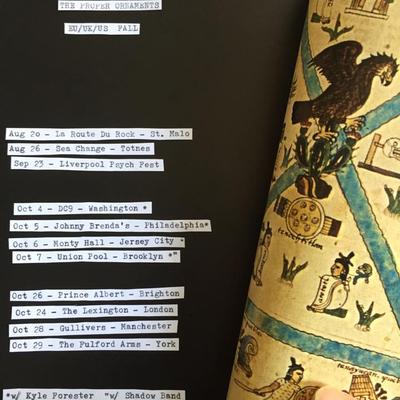 THE PROPER ORNAMENTS
EU/UK/US FALL
Aug 20 - La Route Du Rock - St. Malo
Aug 26 - Sea Change - Totnes
Sep 23 - Liverpool Psych Fest
Oct 4 - DC9 - Washington *
Oct 5 - Johnny Brenda's - Philadelphia*
Oct 6 - Monty Hall - Jersey City *
Oct 7 - Union Pool - Brooklyn *"
Oct 26 - Prince Albert - Brighton
Oct 24 - The Lexington - London
Oct 28 - Gullivers - Manchester
Oct 29 - The Fulford Arms - York
*w/ Kyle Forester "w/ Shadow Band